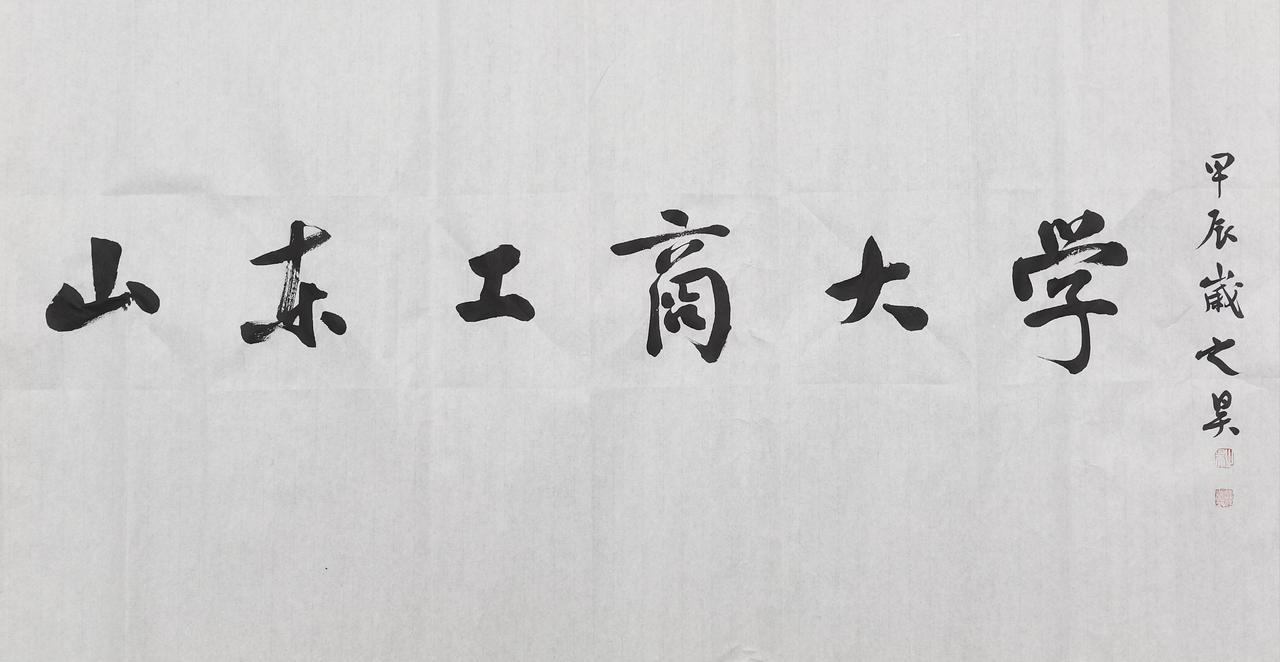 山东工商大学
甲辰岁之昊